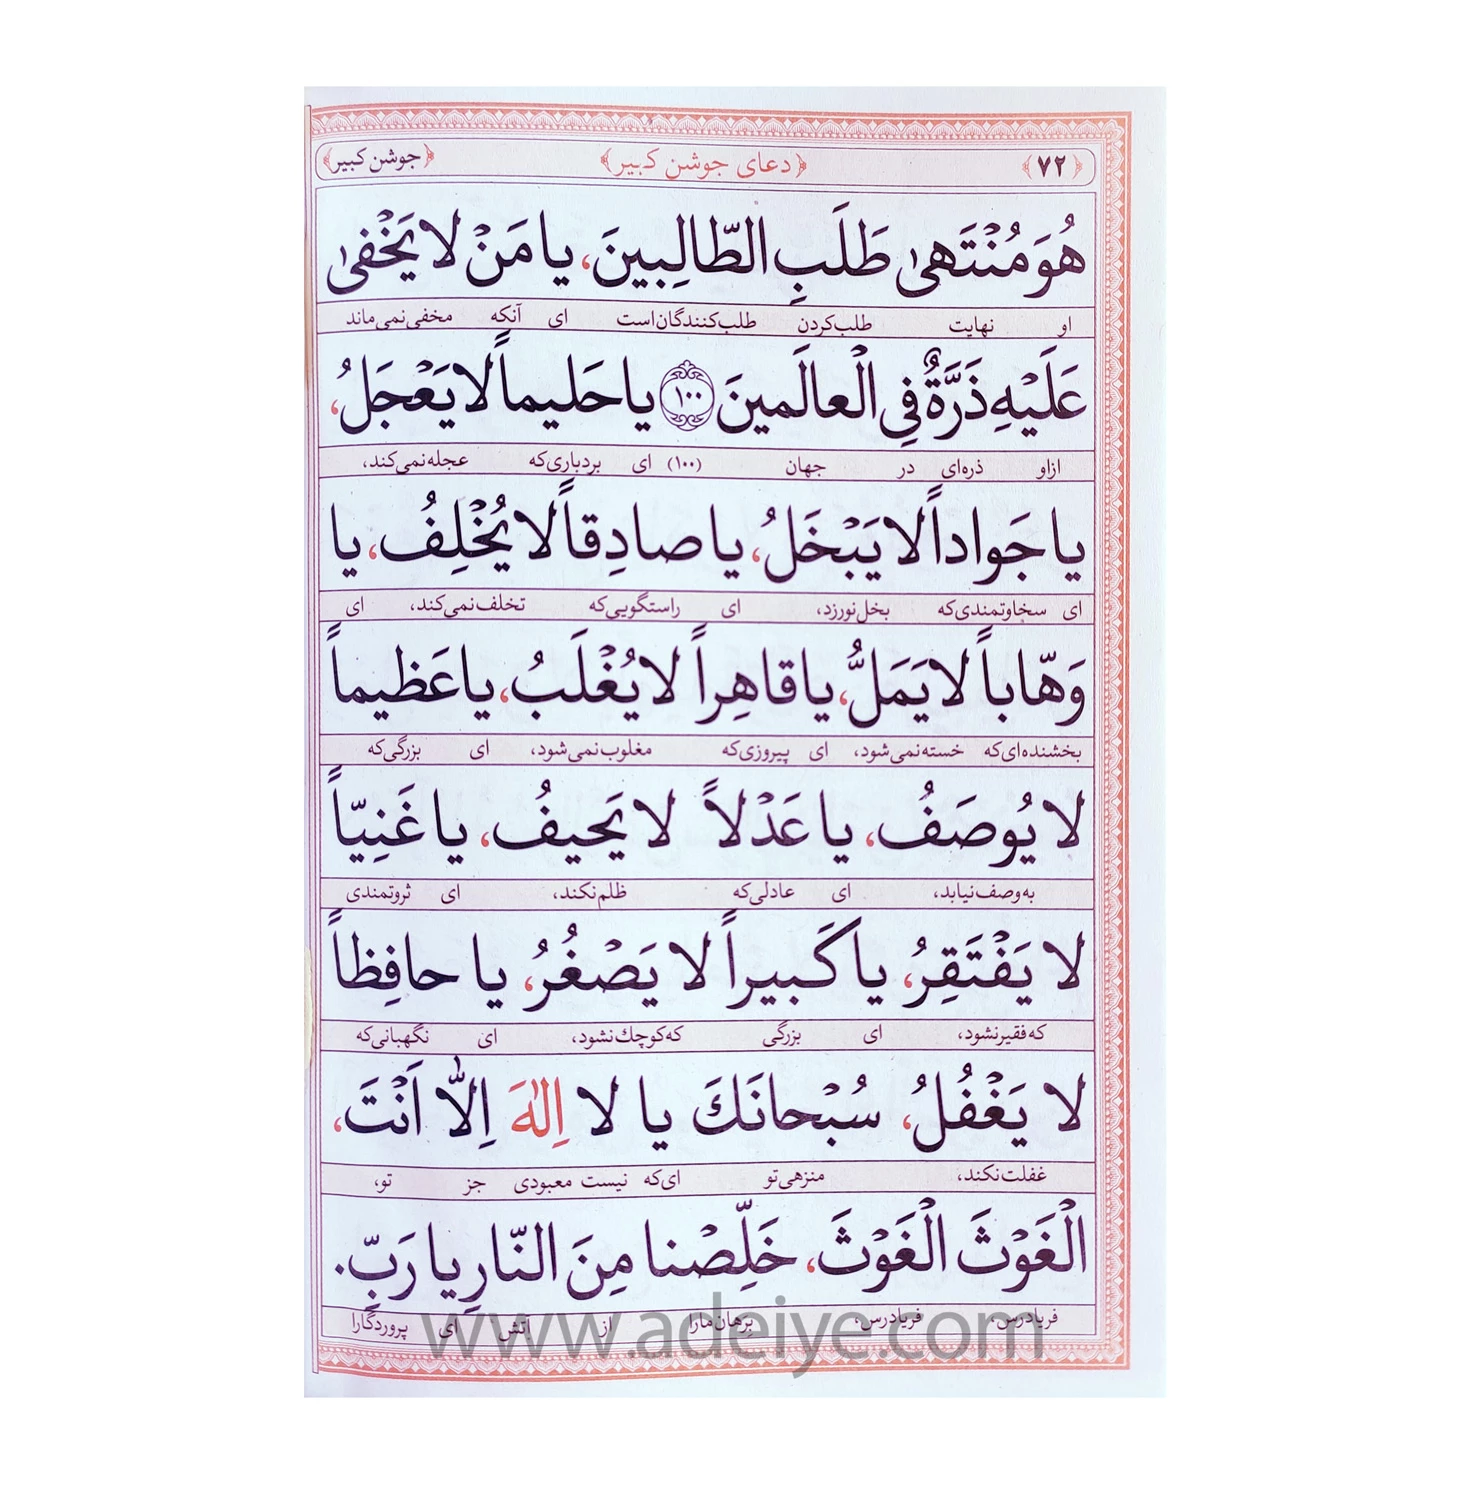 ﴿۷۲﴾ ﴿دعای جوشن کبیر﴾ ﴿جوشن کبیر﴾
هُوَ مُنْتَهىٰ طَلَبِ الطّالِبینَ، یا مَنْ لا یَخْفىٰ
او نهایت طلب‌کردن طلب‌کنندگان‌است ای آنکه مخفی‌نمی‌ماند
عَلَیْهِ ذَرَّةٌ فِی الْعالَمینَ ﴿۱۰۰﴾ یا حَلیماً لا یَعْجَلُ،
ازاو ذره‌ای در جهان (۱۰۰) ای بردباری‌که عجله‌نمی‌کند،
یا جَواداً لا یَبْخَلُ، یا صادِقاً لا یُخْلِفُ، یا
ای سخاوتمندی‌که بخل‌نورزد، ای راستگویی‌که تخلف‌نمی‌کند، ای
وَهّاباً لا یَمَلُّ، یا قاهِراً لا یُغْلَبُ، یا عَظیماً
بخشنده‌ای‌که خسته‌نمی‌شود، ای پیروزی‌که مغلوب‌نمی‌شود، ای بزرگی‌که
لا یُوصَفُ، یا عَدْلاً لا یَحیفُ، یا غَنِیّاً
به‌وصف‌نیابد، ای عادلی‌که ظلم‌نکند، ای ثروتمندی
لا یَفْتَقِرُ، یا کَبیراً لا یَصْغُرُ، یا حافِظاً
که‌فقیرنشود، ای بزرگی که‌کوچك‌نشود، ای نگهبانی‌که
لا یَغْفُلُ، سُبْحانَكَ یا لا اِلٰهَ اِلّا اَنْتَ،
غفلت‌نکند، منزهی‌تو ای‌که نیست معبودی جز تو،
الْغَوْثَ الْغَوْثَ، خَلِّصْنا مِنَ النّارِ یا رَبِّ.
فریادرس، فریادرس، برهان‌مارا از آتش ای پروردگارا
www.adeiye.com